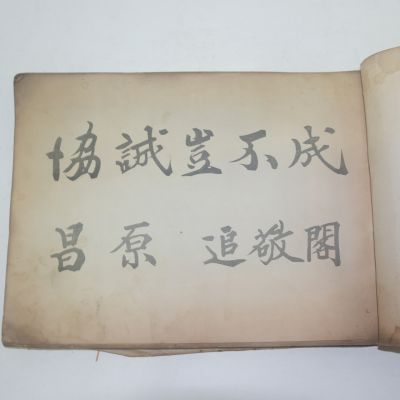 協誠豈不成
昌原 追敬閣